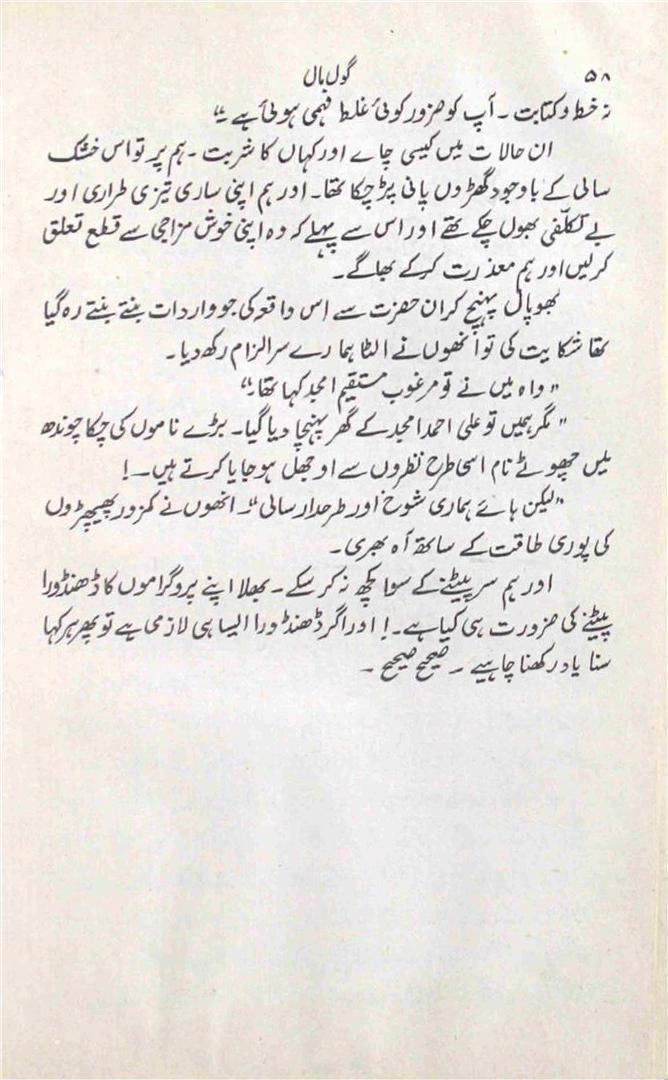 ۵۸
گول مال
نہ خط و کتابت ۔ آپ کو ضرور کوئی غلط فہمی ہوئی ہے ۔"
ان حالات میں کیسی چاے اور کہاں کا شربت ۔ ہم پر تو اس خشک
سالی کے باوجود گھڑوں پانی پڑ چکا تھا۔ اور ہم اپنی ساری تیزی طراری اور
بے تکلّفی بھول چکے تھے اور اس سے پہلے کہ وہ اپنی خوش مزاجی سے قطع تعلق
کرلیں اور ہم معذرت کرکے بھاگے۔
بھوپال پہنچ کر ان حضرت سے اِس واقعہ کی جو واردات بنتے بنتے رہ گیا
تھا شکایت کی تو اُنھوں نے الٹا ہمارے سر الزام رکھ دیا۔
"واہ میں نے تو مرغوب مستقیم امجد کہا تھا۔"
"مگر ہمیں تو علی احمد امجد کے گھر پہنچا دیا گیا۔ بڑے ناموں کی چکا چوندھ
میں چھوٹے نام اسی طرح نظروں سے اوجھل ہوجایا کرتے ہیں۔!
"لیکن ہائے ہماری شوخ اور طرحدار سالی"۔ انھوں نے کمزور پھیپھڑوں
کی پوری طاقت کے ساتھ آہ بھری۔
اور ہم سر پیٹنے کے سوا کچھ نہ کر سکے۔ بھلا اپنے پروگراموں کا ڈھنڈورا
پیٹنے کی ضرورت ہی کیا ہے۔! اور اگر ڈھنڈورا ایسا ہی لازمی ہے تو پھر ہر کہا
سنا یاد رکھنا چاہیے ۔ صحیح صحیح ۔